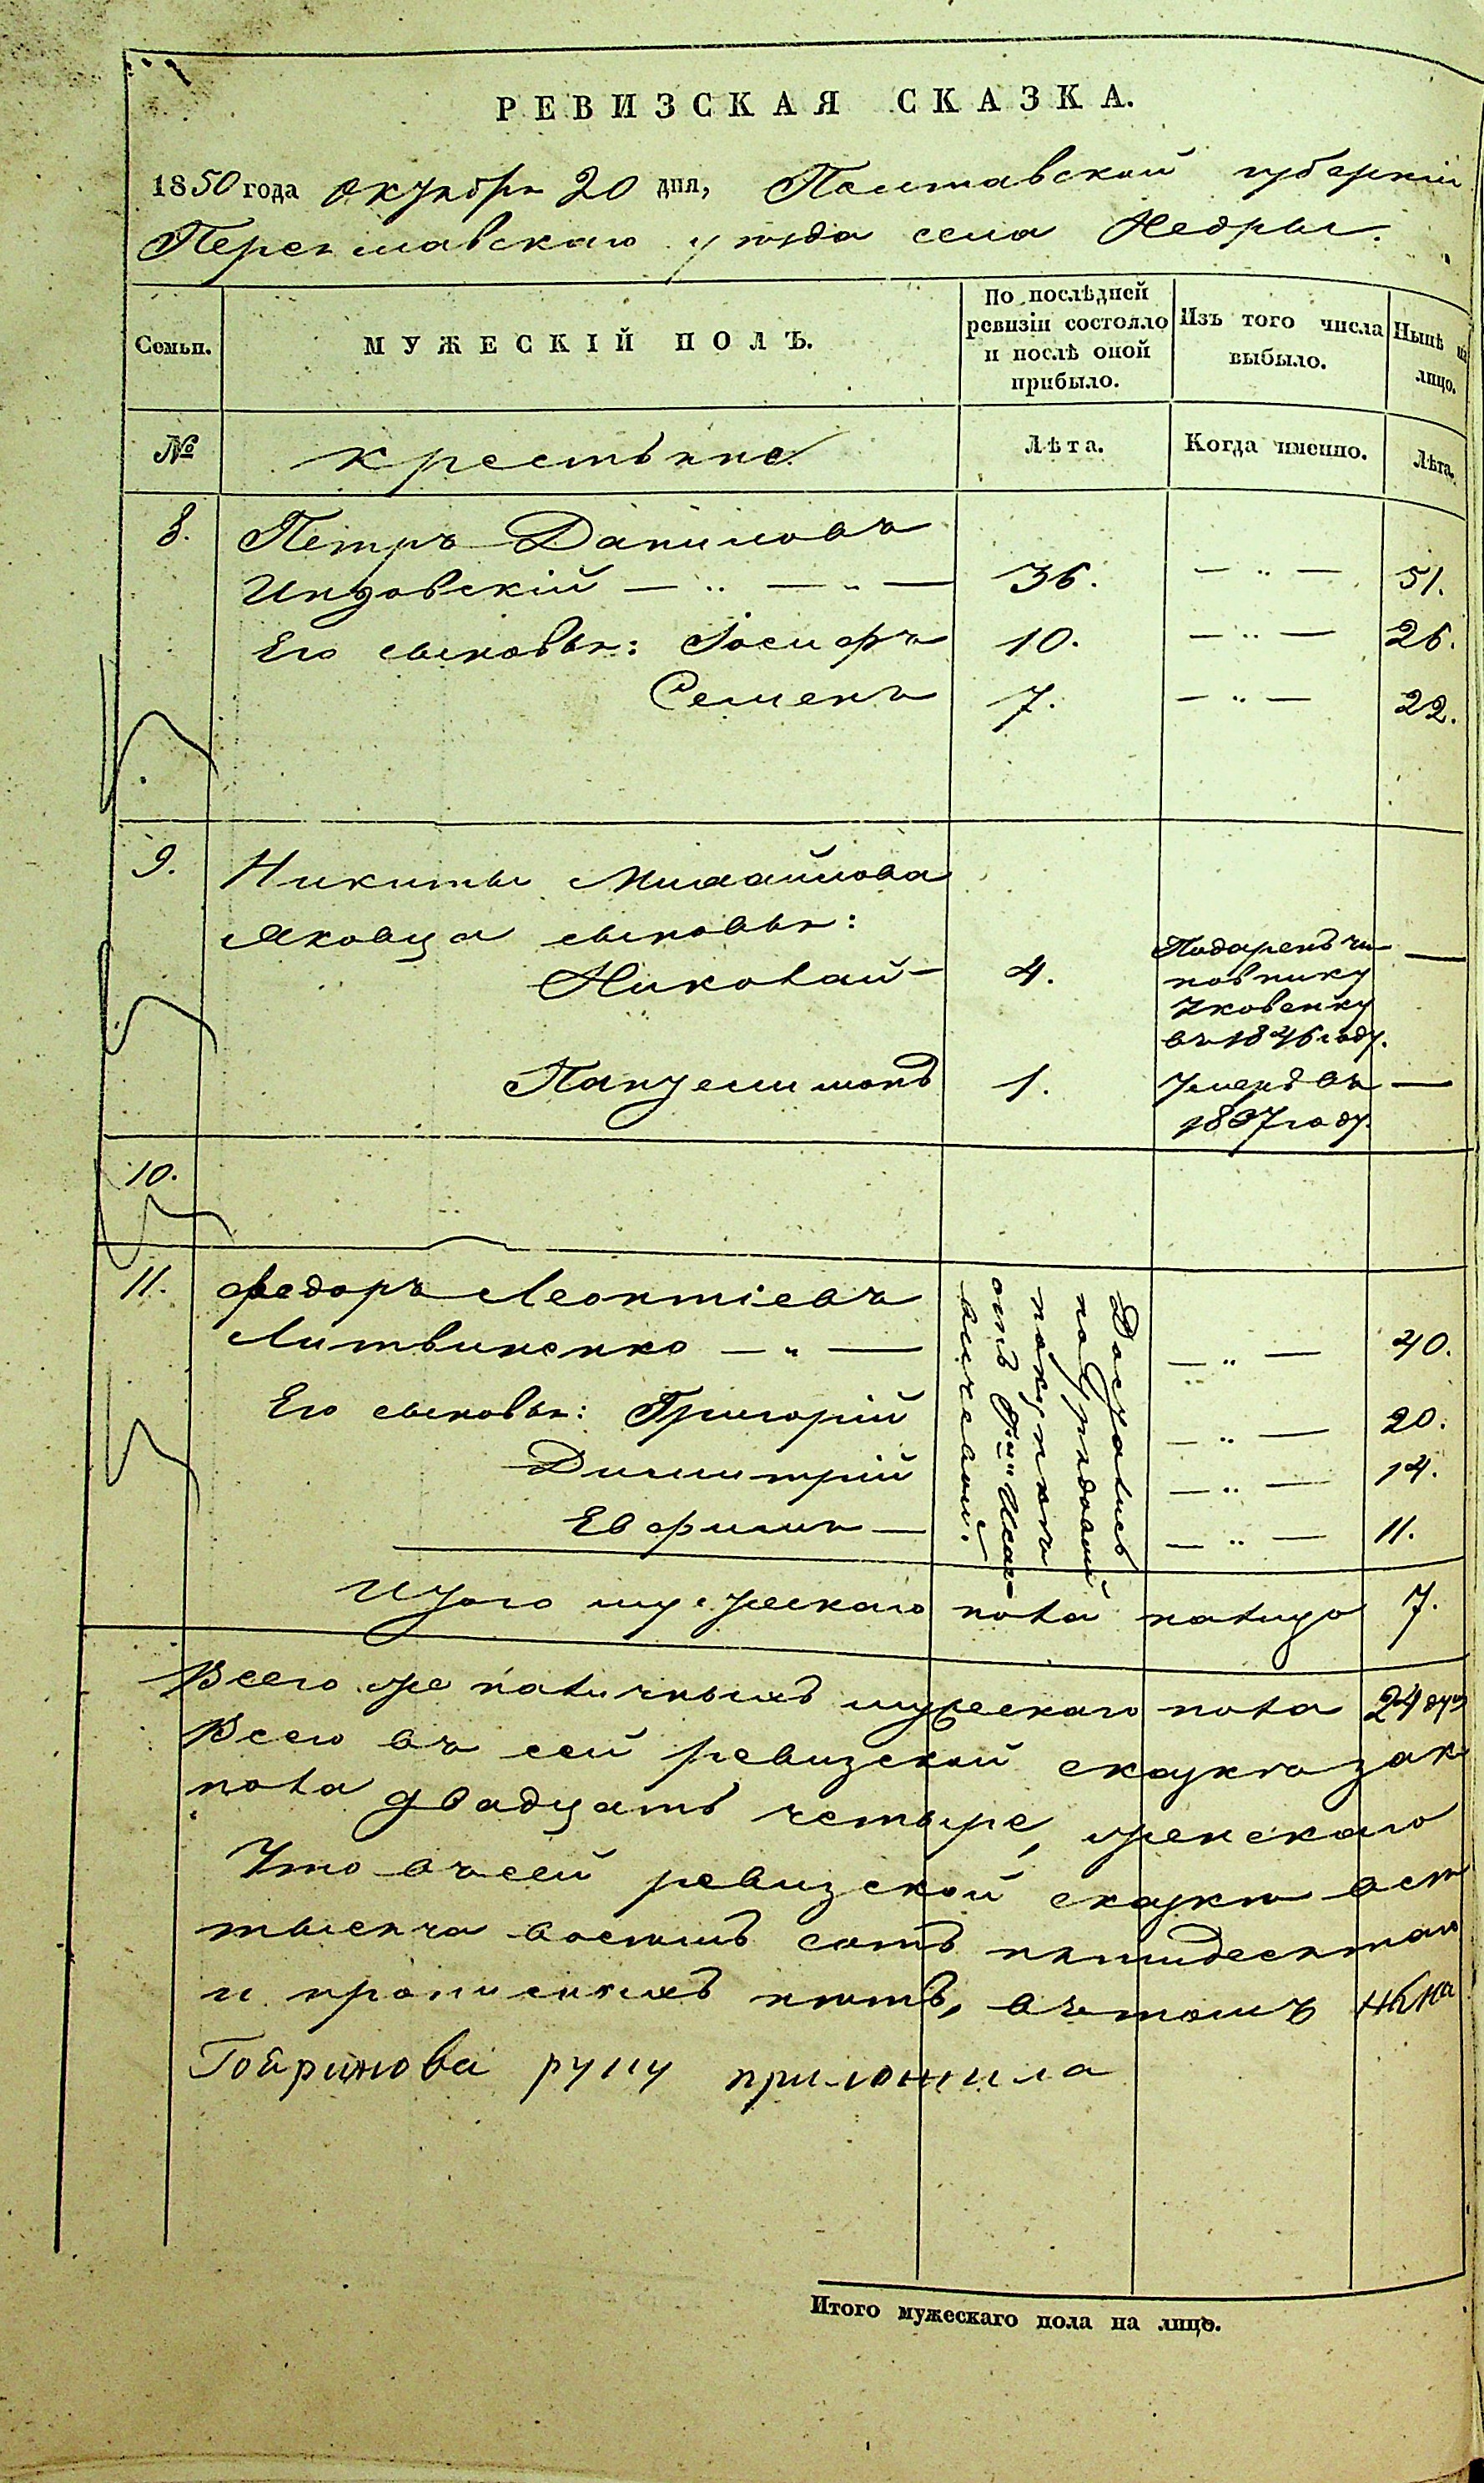 РЕВИЗСКАЯ СКАЗКА.
1850 года октября 20 дня, Полтавской губерніи
Переяславскаго уѣзда села Недры.
Семьи.
МУЖЕСКІЙ ПОЛЪ.
По послѣдней
ревизіи состояло
и послѣ оной
прибыло.
Изъ того числа
выбыло.
Нынѣ на
лицо.
№
крестьяне
Лѣта.
Когда именно.
Лѣта.
8. Петръ Даниловъ
36. — " — 51.
Его сыновья: Іосифъ 10. — " — 26.
Семенъ 7. — " — 22.
9. Никиты Михайлова
Яковца сыновья:
Николай — 4. Подаренъ чи-
новнику
Яковенку
въ 1846 году. —
Пантелимонъ 1. Умеръ въ
1837 году. —
10.
11. Федоръ Леонтіевъ
Литвиненко — " — — " — 40.
Его сыновья: Григорій — " — 20.
Димитрій — " — 14.
Евфимъ — — " — 11.
Достались
по
покупкѣ
отъ
Итого мужескаго пола налицо 7.
Всего же наличныхъ мужескаго пола 24 душ
Всего въ сей ревизской сказкѣ
пола двадцать четыре, женскаго
Что въ сей ревизской сказкѣ
тысяча восемь сотъ пятидесятаго
и прописныхъ нѣтъ, въ томъ
руку приложила
Итого мужескаго пола на лицо.